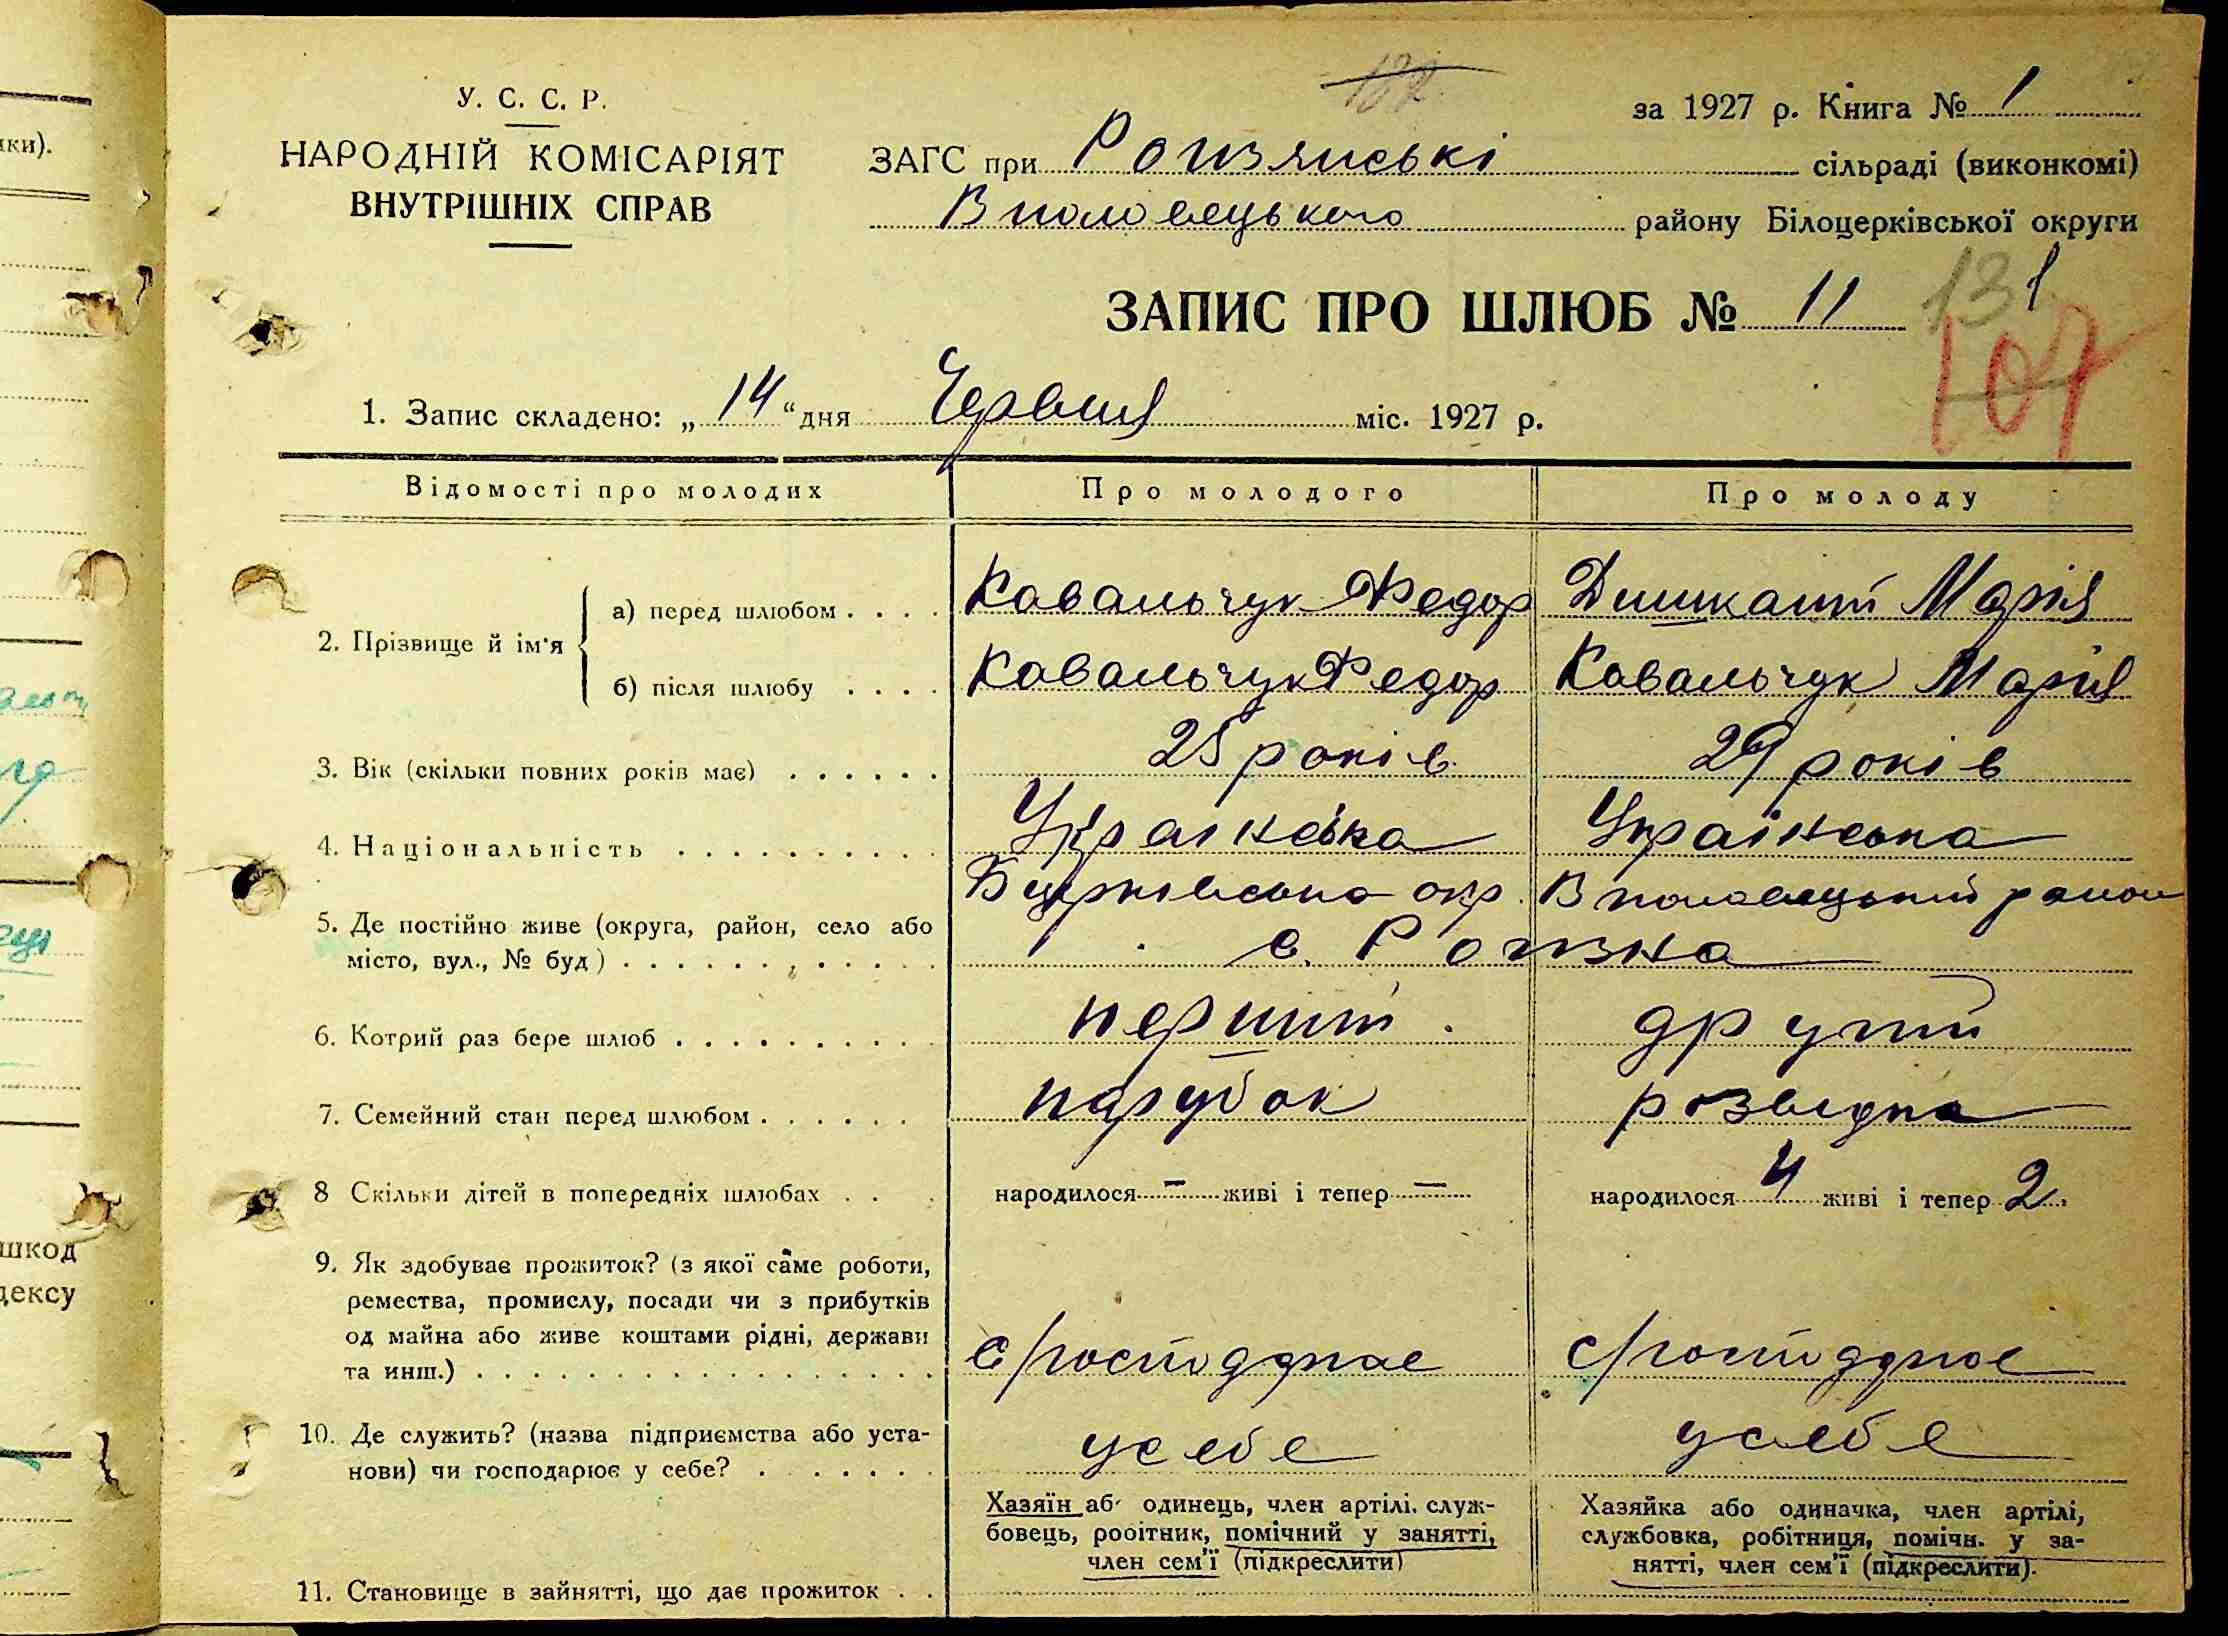 У. С. С. Р.
НАРОДНІЙ КОМІСАРІЯТ
ВНУТРІШНІХ СПРАВ
132
за 1927 р. Книга № 1
ЗАГС при Рожзянські сільраді (виконкомі)
Вполовецького району Білоцерківської округи
ЗАПИС ПРО ШЛЮБ № 11
131
107
1. Запис складено: „ 14 “ дня Червня міс. 1927 р.
Відомості про молодих
Про молодого
Про молоду
2. Прізвище й ім'я
а) перед шлюбом . . . .
Ковальчук Федор
Марія
б) після шлюбу . . . .
Ковальчук Федор
Ковальчук Марія
3. Вік (скільки повних років має) . . . . . .
25 років
29 років
4. Національність . . . . . . . . . .
Українська
Українська
5. Де постійно живе (округа, район, село або
місто, вул., № буд) . . . . . . . . . . . .
Бцерківська окр. Вполовецький район
с. Рожзна
6. Котрий раз бере шлюб . . . . . . . . . .
перший
другий
7. Семейний стан перед шлюбом . . . . . .
парубок
розвідна
8 Скільки дітей в попередніх шлюбах . . .
народилося — живі і тепер —
народилося 4 живі і тепер 2
9. Як здобуває прожиток? (з якої саме роботи,
ремества, промислу, посади чи з прибутків
од майна або живе коштами рідні, держави
та инш.) . . . . . . . . . . . . . . . . .
с/господарює
с/господарює
10. Де служить? (назва підприємства або уста-
нови) чи господарює у себе? . . . . . . .
у себе
у себе
11. Становище в зайнятті, що дає прожиток . .
Хазяїн або одинець, член артілі, служ-
бовець, робітник, помічний у занятті,
член сем'ї (підкреслити)
Хазяйка або одиначка, член артілі,
службовка, робітниця, помічн. у за-
нятті, член сем'ї (підкреслити).